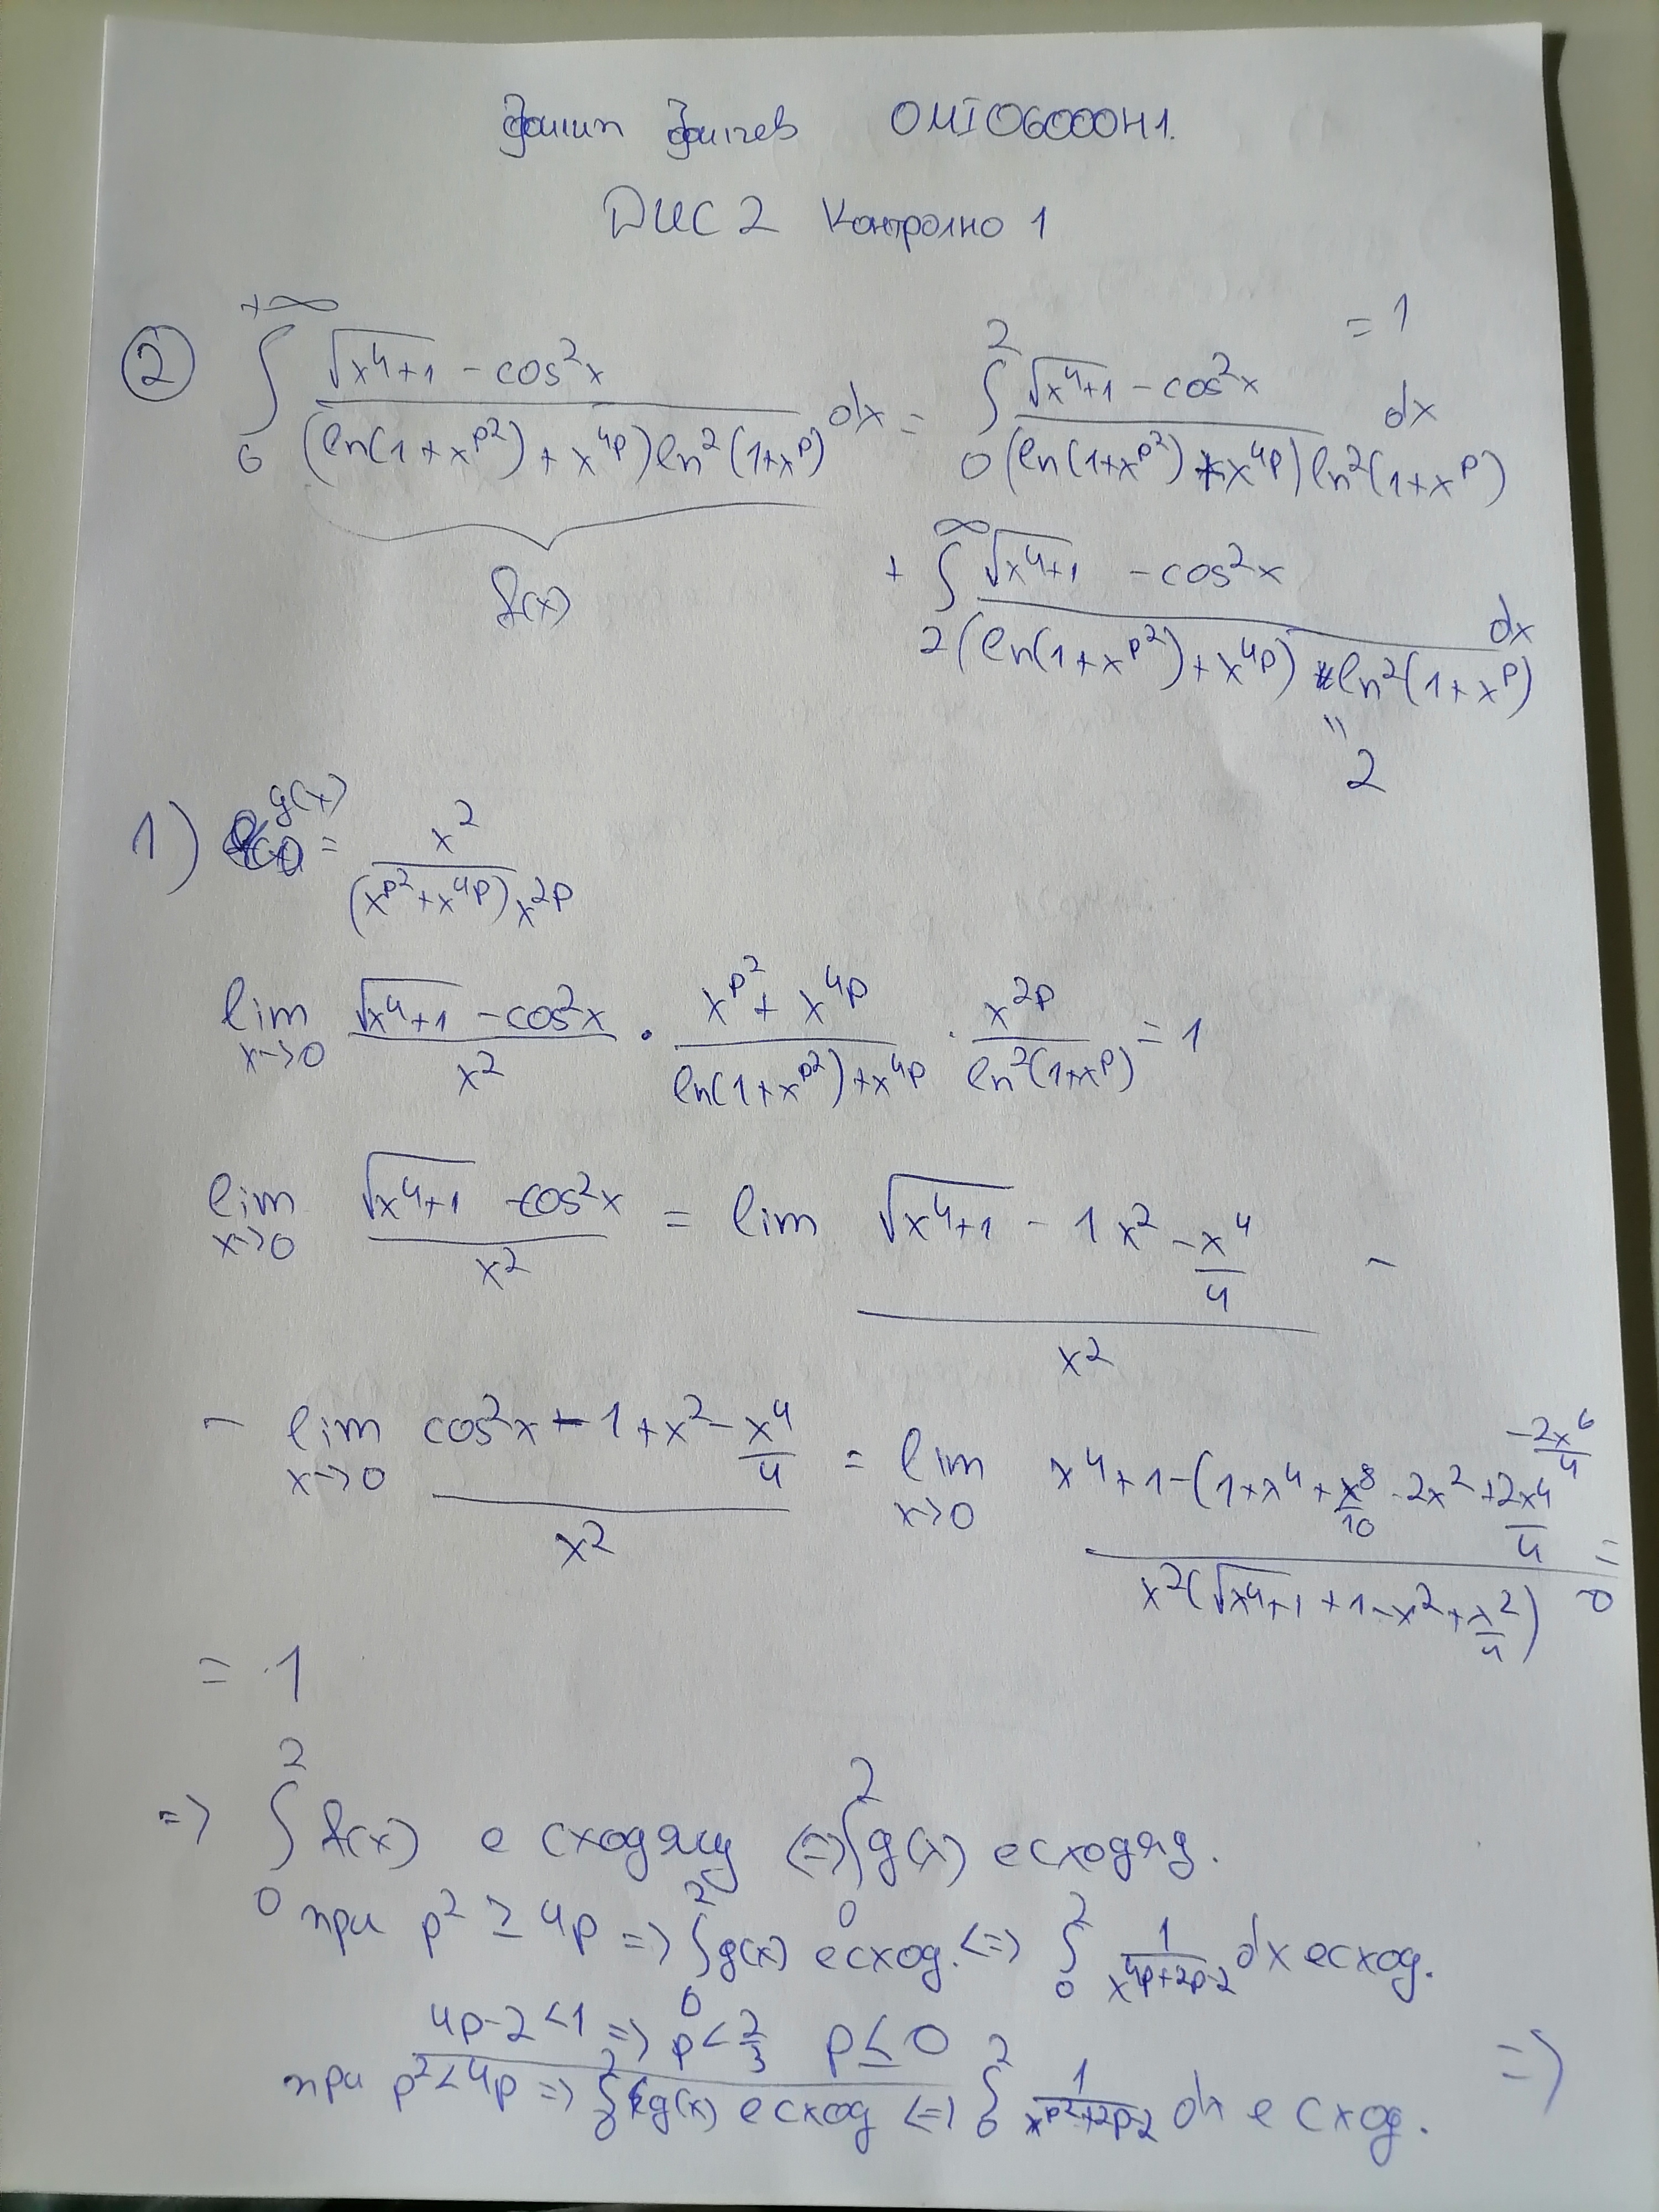 ОМІ0600041.
ДИС 2 Контролно 1
② ∫₀^{+∞} (√(x⁴+1) - cos²x) / ((ln(1+x^{p²}) + x^{4p}) ln²(1+x^p)) dx = ∫₀² (√(x⁴+1) - cos²x) / ((ln(1+x^{p²}) + x^{4p}) ln²(1+x^p)) dx = 1
f(x)
+ ∫₂^∞ (√(x⁴+1) - cos²x) / ((ln(1+x^{p²}) + x^{4p}) ln²(1+x^p)) dx
" 2
1) g(x) = x² / ((x^{p²} + x^{4p}) x^{2p})
lim_{x→0} (√(x⁴+1) - cos²x) / x² · (x^{p²} + x^{4p}) / (ln(1+x^{p²}) + x^{4p}) · x^{2p} / ln²(1+x^p) = 1
lim_{x→0} (√(x⁴+1) - cos²x) / x² = lim (√(x⁴+1) - 1 x² - x⁴/4) / x² -
- lim_{x→0} (cos²x - 1 + x² - x⁴/4) / x² = lim_{x→0} (x⁴+1-(1+x⁴+x⁸/10 - 2x² + 2x⁴/4 - 2x⁶/4) / (x²(√(x⁴+1) + 1 - x² + x²/4)) =
= 1
=> ∫₀² f(x) е сходящ <=> ∫₀² g(x) е сходящ.
при p² ≥ 4p => ∫₀² g(x) е сход. <=> ∫₀² 1/x^{4p+2p-2} dx е сход.
4p-2 < 1 => p < 2/3 p ≤ 0
при p² < 4p => ∫₀² g(x) е сход <=> ∫₀² 1/x^{p²+2p-2} dx е сход. =>